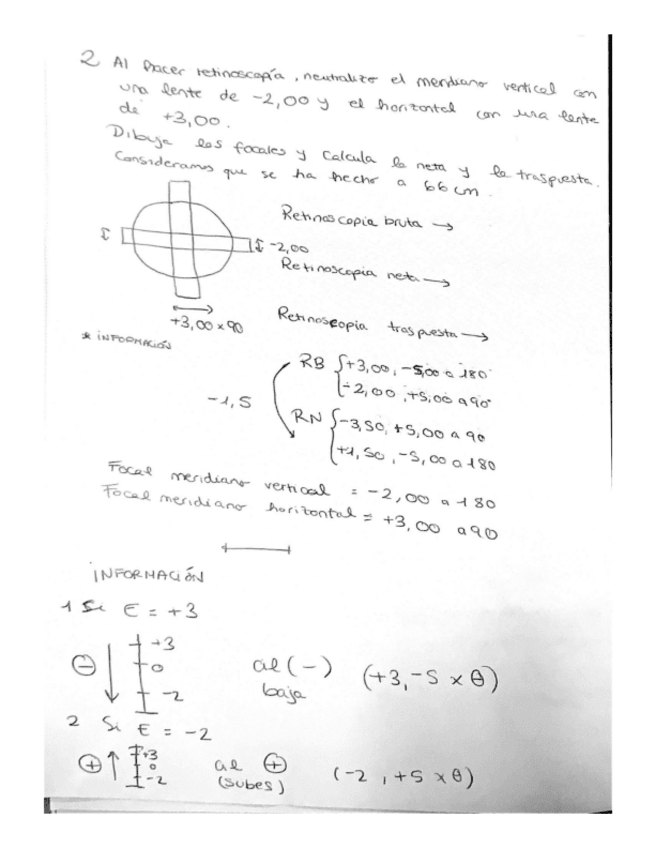 2 Al hacer retinoscopía, neutralizo el meridiano vertical con
una lente de -2,00 y el horizontal con una lente
de +3,00.
Dibuja las focales y calcula la neta y la traspuesta.
Consideramos que se ha hecho a 66 cm.
Retinoscopia bruta →
-2,00
Retinoscopia neta →
+3,00 x 90
Retinoscopia traspuesta →
* INFORMACIÓN
RB +3,00, -5,00 a 180°
-2,00, +5,00 a 90°
-1,5
RN -3,50, +5,00 a 90
+1,50, -5,00 a 180
Focal meridiano vertical = -2,00 a 180
Focal meridiano horizontal = +3,00 a 90
INFORMACIÓN
1 Si E = +3
⊖ ↓ +3
0
-2
al (-)
baja
(+3, -5 x θ)
2 Si E = -2
⊕ ↑ +3
0
-2
al ⊕
(subes)
(-2, +5 x θ)